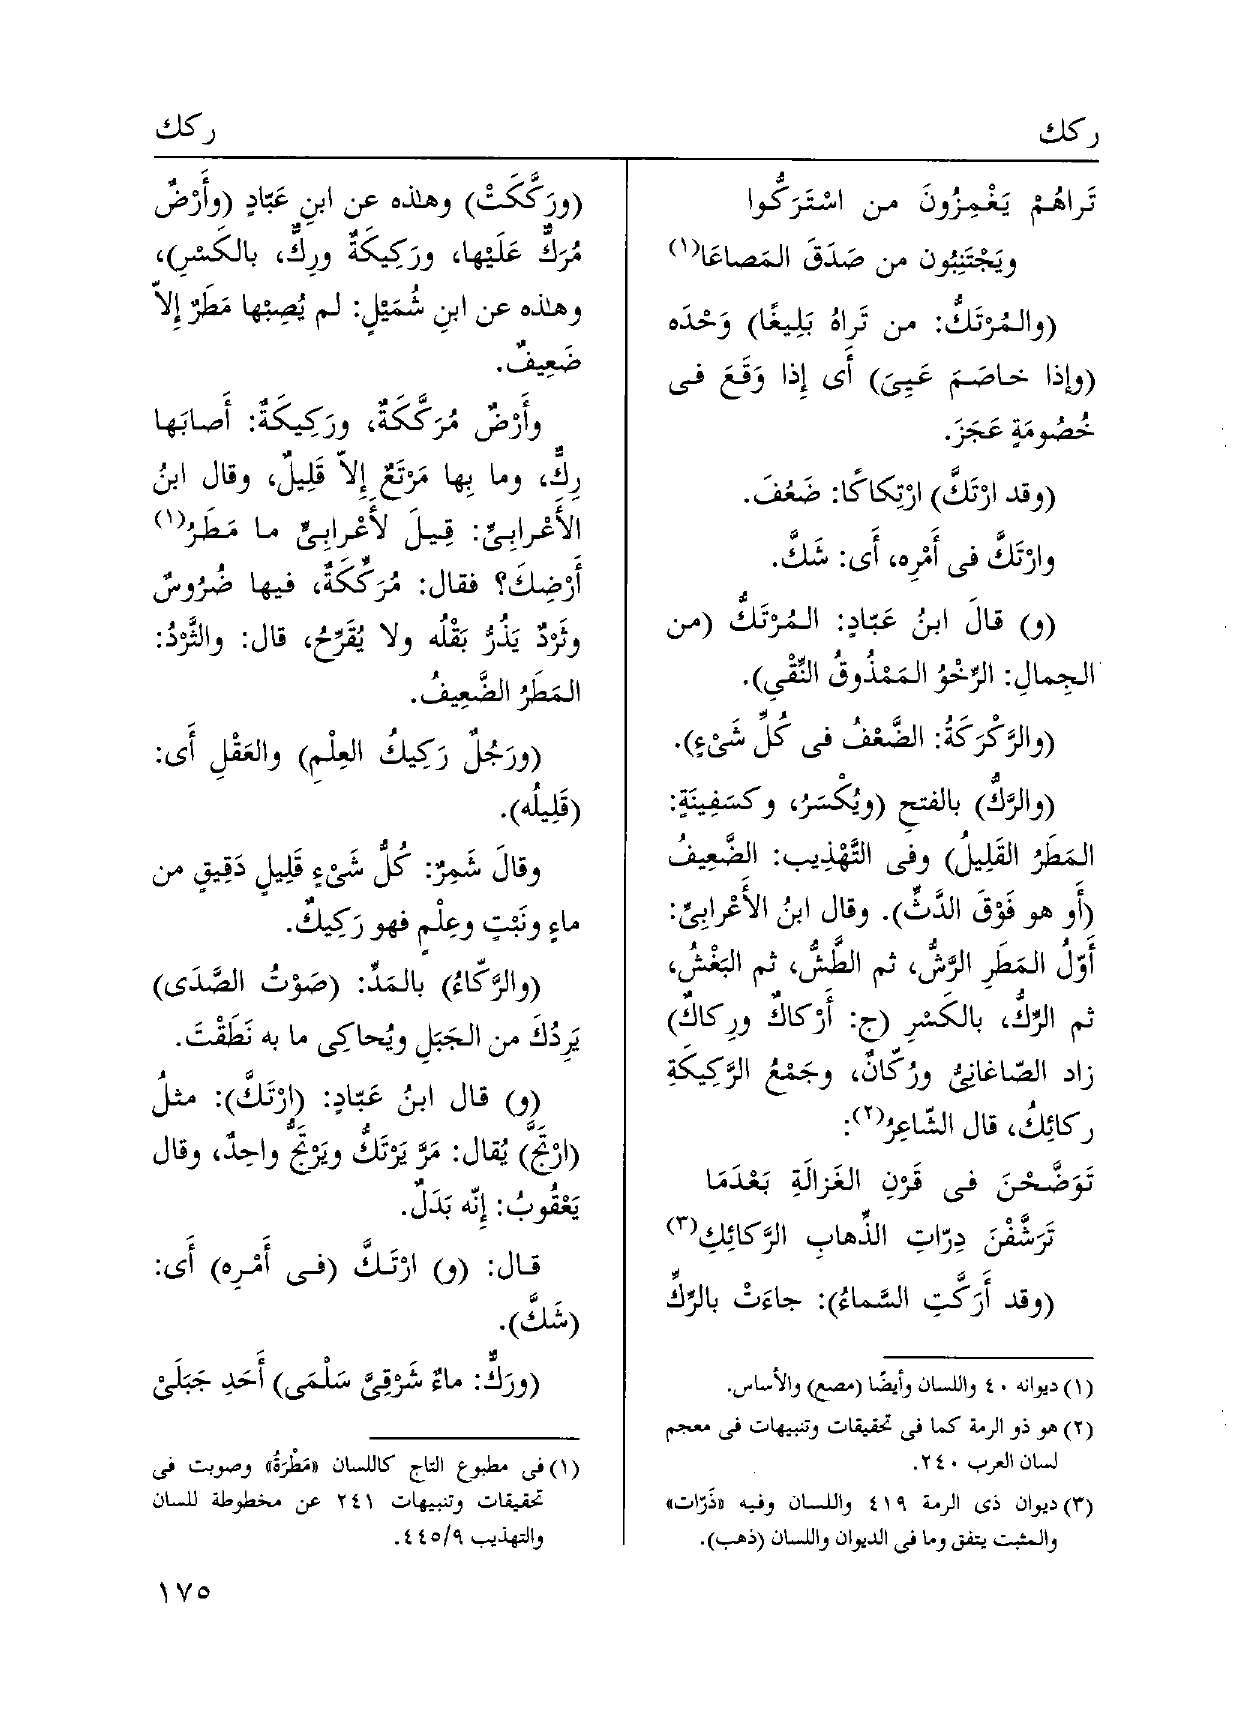 ركك
ركك
تَراهُمْ يَغْمِزُونَ من اسْتَرَكُّوا
ويَجْتَنِبُون من صَدَقَ المَصاعَا(١)
(والمُرْتَكُّ: من تَراهُ بَلِيغًا) وَحْدَه
(وإذا خاصَمَ عَيِىَ) أَى إِذا وَقَعَ فى
خُصُومَةٍ عَجَزَ.
(وقد ارْتَكَّ) ارْتِكاكًا: ضَعُفَ.
وارْتَكَّ فى أَمْرِه، أَى: شَكَّ.
(و) قالَ ابنُ عَبّادٍ: المُرْتَكُّ (من
الجِمالِ: الرِّخْوُ المَمْذُوقُ النِّقْيِ).
(والرَّكْرَكَةُ: الضَّعْفُ فى كُلِّ شَىْءٍ).
(والرَّكُّ) بالفتحِ (ويُكْسَرُ، وكسَفِينَةٍ:
المَطَرُ القَلِيلُ) وفى التَّهْذِيب: الضَّعِيفُ
(أَو هو فَوْقَ الدَّثِّ). وقال ابنُ الأَعْرابِىِّ:
أَوّلُ المَطَرِ الرَّشُّ، ثم الطَّشُّ، ثم البَغْشُ،
ثم الرِّكُّ، بالكَسْرِ (ج: أَرْكاكٌ ورِكاكٌ)
زاد الصّاغانِىُّ ورُكّانٌ، وجَمْعُ الرَّكِيكَةِ
ركائِكُ، قال الشّاعِرُ(٢):
تَوَضَّحْنَ فى قَرْنِ الغَزالَةِ بَعْدَمَا
تَرَشَّفْنَ دِرّاتِ الذِّهابِ الرَّكائِكِ(٣)
(وقد أَرَكَّتِ السَّماءُ): جاءَتْ بالرِّكِّ
(١) ديوانه ٤٠ واللسان وأيضًا (مصع) والأساس.
(٢) هو ذو الرمة كما فى تحقيقات وتنبيهات فى معجم
لسان العرب ٢٤٠.
(٣) ديوان ذى الرمة ٤١٩ واللسان وفيه «ذَرّات»
والمثبت يتفق وما فى الديوان واللسان (ذهب).
(ورَكَّكَتْ) وهٰذه عن ابنِ عَبّادٍ (وأَرْضٌ
مُرَكٌّ عَلَيْها، ورَكِيكَةٌ ورِكٌّ، بالكَسْرِ)،
وهٰذه عن ابنِ شُمَيْلٍ: لم يُصِبْها مَطَرٌ إِلاّ
ضَعِيفٌ.
وأَرْضٌ مُرَكَّكَةٌ، ورَكِيكَةٌ: أَصابَها
رِكٌّ، وما بِها مَرْتَعٌ إِلاّ قَلِيلٌ، وقال ابنُ
الأَعْرابِىِّ: قِيلَ لأَعْرابِىٍّ ما مَطَرُ(١)
أَرْضِكَ؟ فقال: مُرَكِّكَةٌ، فيها ضُرُوسٌ
وثَرْدٌ يَذُرُّ بَقْلُه ولا يُقَرِّحُ، قال: والثَّرْدُ:
المَطَرُ الضَّعِيفُ.
(ورَجُلٌ رَكِيكُ العِلْمِ) والعَقْلِ أَى:
(قَلِيلُه).
وقالَ شَمِرٌ: كُلُّ شَىْءٍ قَلِيلٍ دَقِيقٍ من
ماءٍ ونَبْتٍ وعِلْمٍ فهو رَكِيكٌ.
(والرَّكّاءُ) بالمَدِّ: (صَوْتُ الصَّدَى)
يَرِدُكَ من الجَبَلِ ويُحاكِى ما به نَطَقْتَ.
(و) قال ابنُ عَبّادٍ: (ارْتَكَّ): مثلُ
(ارْتَجَّ) يُقال: مَرَّ يَرْتَكُّ ويَرْتَجُّ واحِدٌ، وقال
يَعْقُوبُ: إِنّه بَدَلٌ.
قال: (و) ارْتَكَّ (فى أَمْرِه) أَى:
(شَكَّ).
(ورَكٌّ: ماءٌ شَرْقِىَّ سَلْمَى) أَحَدِ جَبَلَىْ
(١) فى مطبوع التاج كاللسان «مَطْرَةُ» وصوبت فى
تحقيقات وتنبيهات ٢٤١ عن مخطوطة للسان
والتهذيب ٤٤٥/٩.
١٧٥